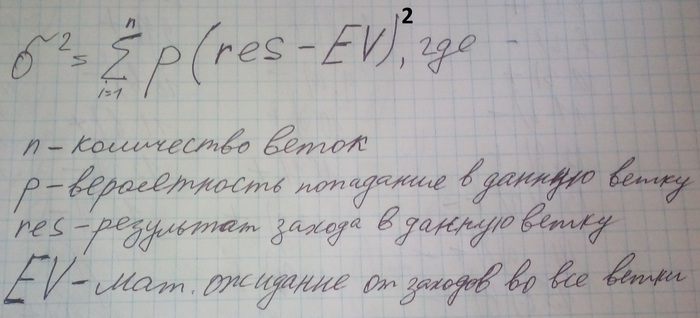 σ² = n∑i=1 p(res - EV)², где
n - количество веток
p - вероятность попадание в данную ветку
res - результат захода в данную ветку
EV - мат. ожидание от заходов во все ветки